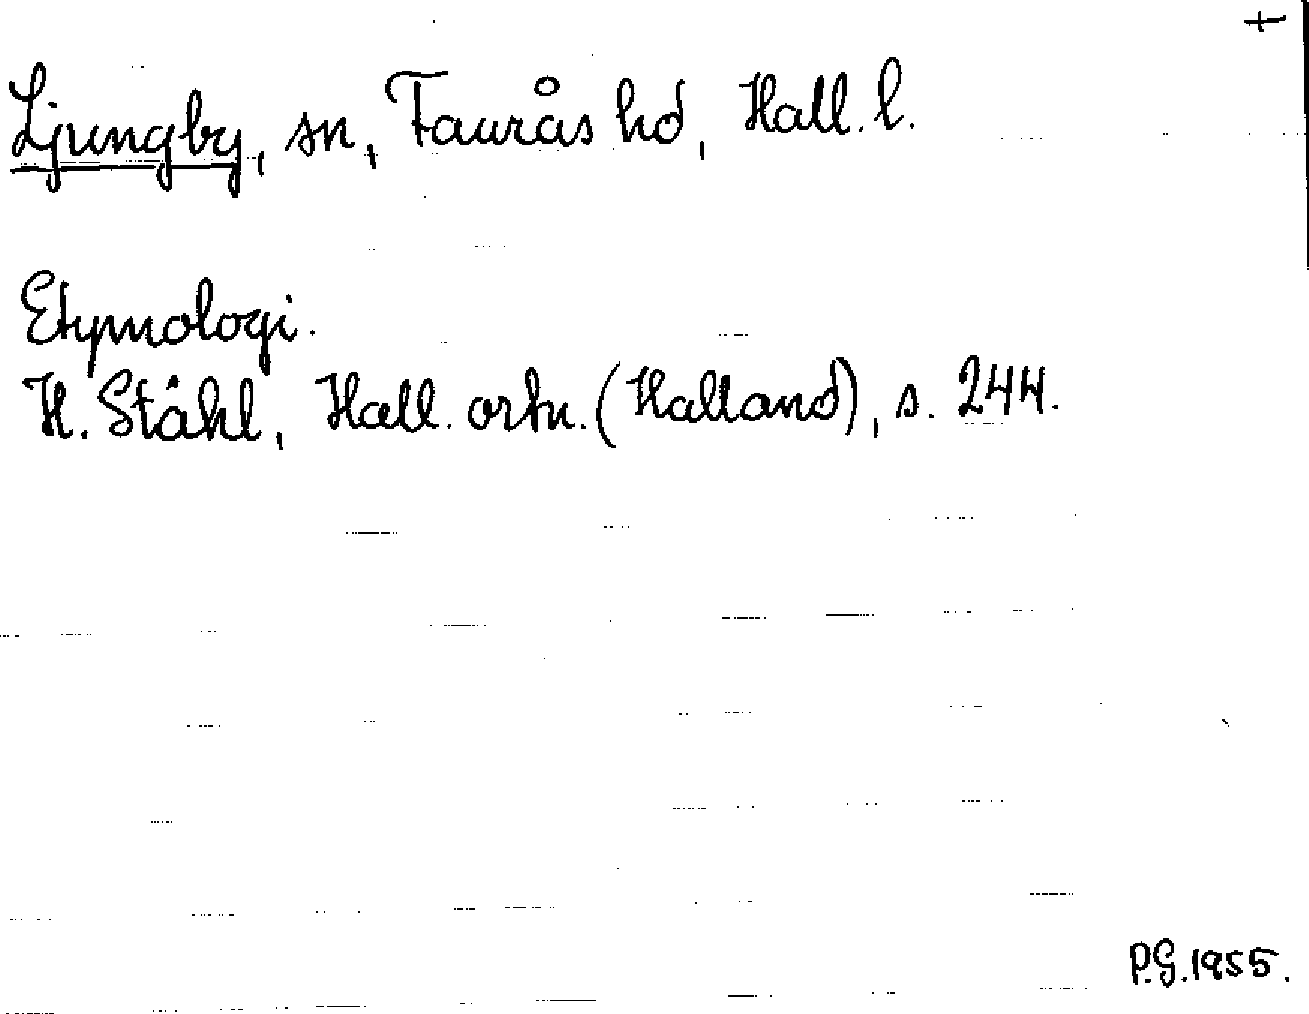 +
Ljungby, sn, Faurås hd, Hall. l.
Etymologi.
H. Ståhl, Hall. ortn. (Halland), s. 244.
P.G. 1955.